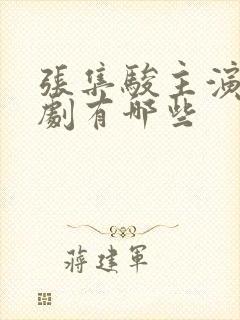 張集駿主演
劇有哪些
蔣建軍